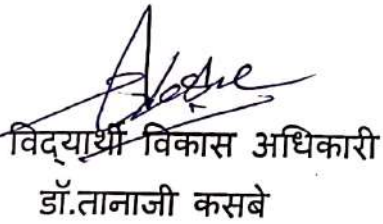 विद्यार्थी विकास अधिकारी
डॉ.तानाजी कसबे